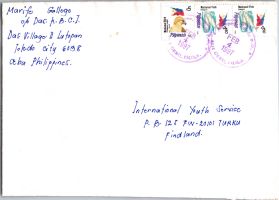 Marife Gallego
c/o Das P.B.C.I.
Das Village 8 Lutopan
Toledo City 6038
Cebu Philippines.
International Youth Service
P.B 125 FIN-20101 TURKU
Findland.